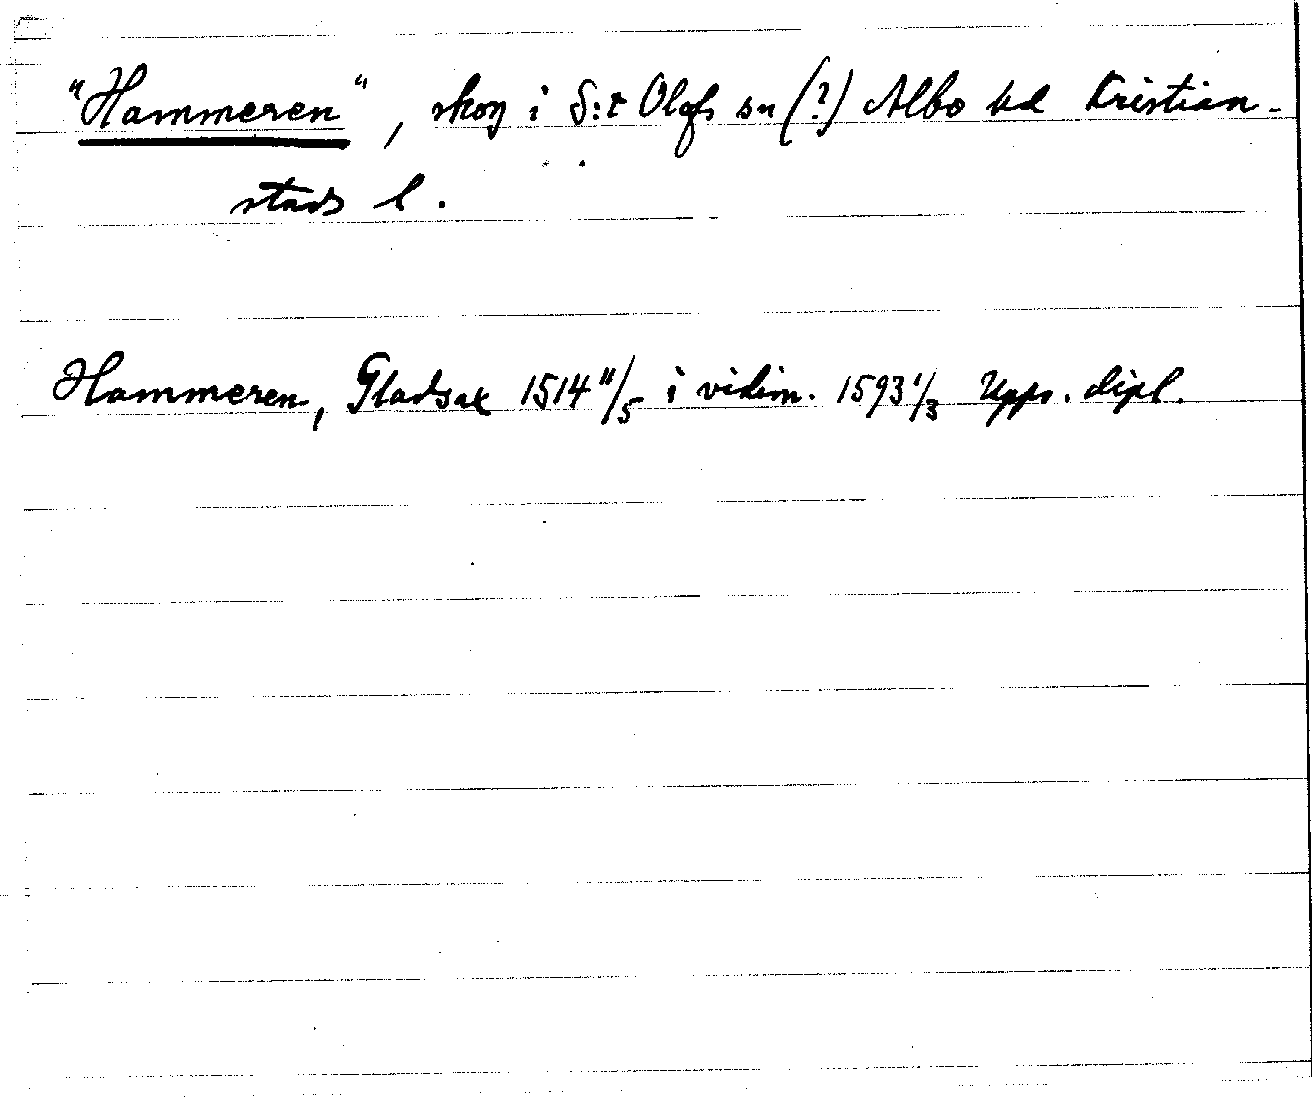 "Hammeren", skog i S:t Olofs sn (?) Albo hd Kristian-
stads l.
Hammeren, Gladsax 1514 11/5 i vidim. 1593 1/3 Upps. dipl.